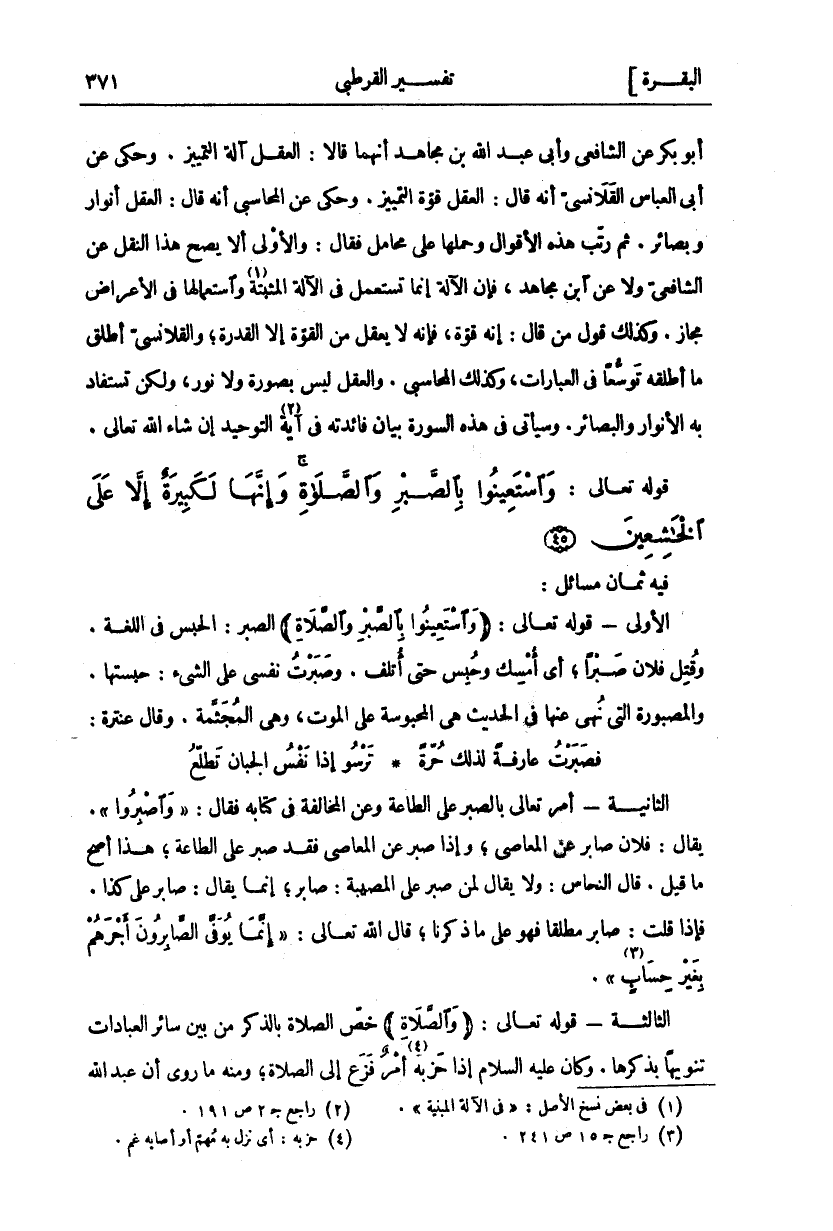 البقــرة ] تفســير القرطبى ٣٧١
أبو بكر عن الشافعى وأبى عبد الله بن مجاهد أنهما قالا : العقل آلة التمييز . وحكى عن
أبى العباس القَلَانسىّ أنه قال : العقل قوّة التمييز . وحكى عن المحاسبي أنه قال : العقل أنوار
وبصائر . ثم رتّب هذه الأقوال وحملها على محامل فقال : والأوْلى ألا يصح هذا النقل عن
الشافعىّ ولا عن ٱبن مجاهد ، فإن الآلة إنما تستعمل فى الآلة المثبتة(١) وٱستعمالها فى الأعراض
مجاز . وكذلك قول من قال : إنه قوّة ، فإنه لا يعقل من القوّة إلا القدرة ؛ والقلانسىّ أطلق
ما أطلقه تَوسُّعًا فى العبارات ، وكذلك المحاسبي . والعقل ليس بصورة ولا نور ، ولكن تستفاد
به الأنوار والبصائر . وسيأتى فى هذه السورة بيان فائدته فى آية(٢) التوحيد إن شاء الله تعالى .
قوله تعالى : وَٱسْتَعِينُوا بِٱلصَّبْرِ وَٱلصَّلَوٰةِ ۚ وَإِنَّهَا لَكَبِيرَةٌ إِلَّا عَلَى
ٱلْخَـٰشِعِينَ ٤٥
فيه ثمان مسائل :
الأولى — قوله تعالى : ﴿وَٱسْتَعِينُوا بِٱلصَّبْرِ وَٱلصَّلَاةِ﴾ الصبر : الحبس فى اللغة .
وقُتِل فلان صَبْرًا ؛ أى أُمْسِك وحُبِس حتى أُتلف . وصَبَرْتُ نفسى على الشىء : حبستها .
والمصبورة التى نُهى عنها فى الحديث هى المحبوسة على الموت ، وهى المُجَثَّمة . وقال عنترة :
فصَبَرْتُ عارفةً لذلك حُرّةً * تَرْسُو إذا نَفْسُ الجبان تَطلّعُ
الثانيــة — أمر تعالى بالصبر على الطاعة وعن المخالفة فى كتابه فقال : « وَٱصْبِرُوا » .
يقال : فلان صابر عن المعاصى ؛ وإذا صبر عن المعاصى فقد صبر على الطاعة ؛ هذا أصح
ما قيل . قال النحاس : ولا يقال لمن صبر على المصيبة : صابر ؛ إنما يقال : صابر على كذا .
فإذا قلت : صابر مطلقا فهو على ما ذكرنا ؛ قال الله تعالى : « إِنَّمَا يُوَفَّى الصَّابِرُونَ أَجْرَهُمْ
بِغَيْرِ حِسَابٍ(٣) » .
الثالثــة — قوله تعالى : ﴿وَٱلصَّلَاةِ﴾ خصّ الصلاة بالذكر من بين سائر العبادات
تنويهًا بذكرها . وكان عليه السلام إذا حَزَبه(٤) أَمْرٌ فَزَع إلى الصلاة ؛ ومنه ما روى أن عبد الله
(١) فى بعض نسخ الأصل : « فى الآلة المبنية » . (٢) راجع جـ ٢ ص ١٩١ .
(٣) راجع جـ ١٥ ص ٢٤١ . (٤) حزبه : أى نزل به مُهمّ أو أصابه غم .